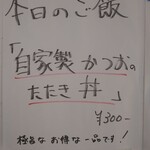 本日のご飯
「自家製 かつおの
たたき 丼 」
¥300-
極旨な お得な 一品です！